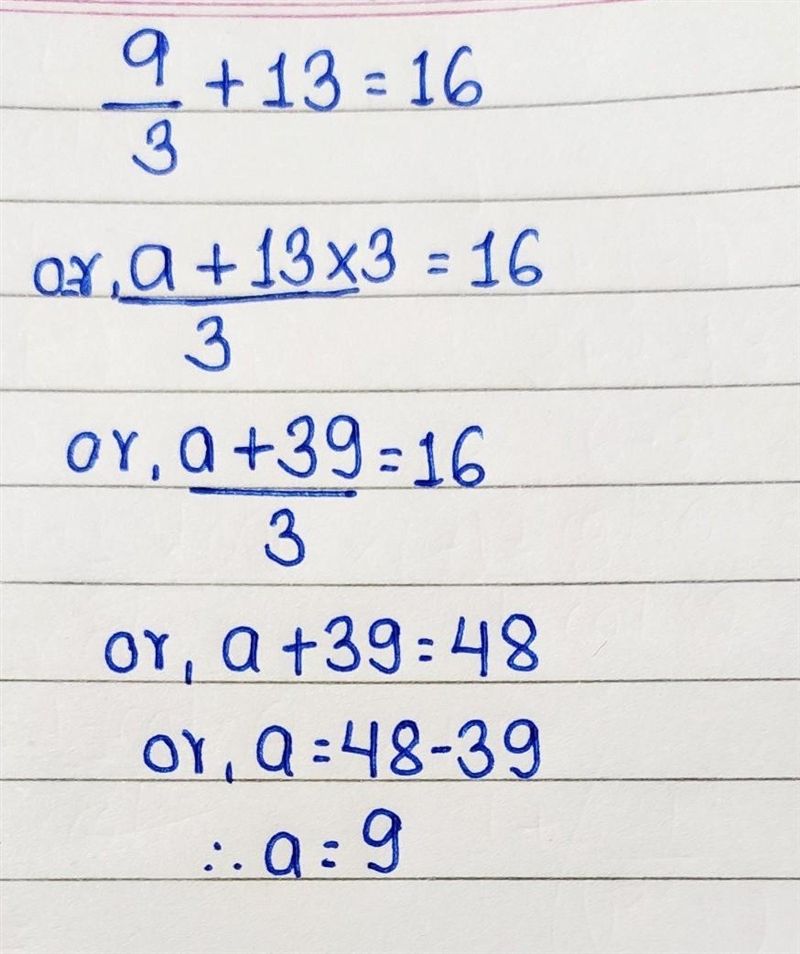 a/3 + 13 = 16
or, (a + 13×3)/3 = 16
or, (a + 39)/3 = 16
or, a + 39 = 48
or, a = 48 - 39
∴ a = 9